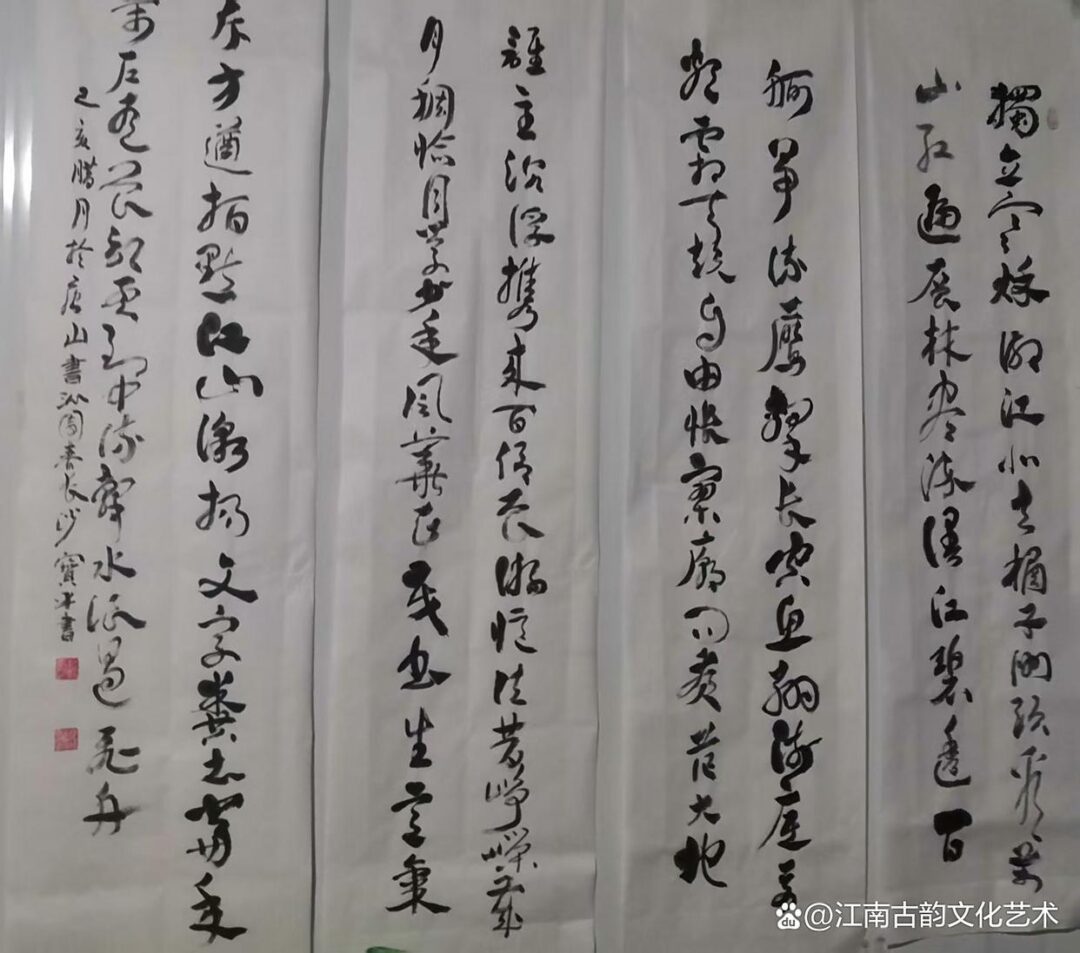 獨立寒秋湘江北去橘子洲頭看萬
山红遍层林尽染漫江碧透百
舸爭流鷹擊长空鱼翔浅底万
類霜天競自由怅寥廓问苍茫大地
誰主沉浮携来百侣曾游憶往昔崢嶸歲
月稠恰同学少年风華正茂书生意氣
斥方遒指點江山激扬文字糞土當年
萬户侯曾記否到中流擊水浪遏飛舟
己亥腊月於唐山書沁園春长沙寶書
@江南古韵文化艺术